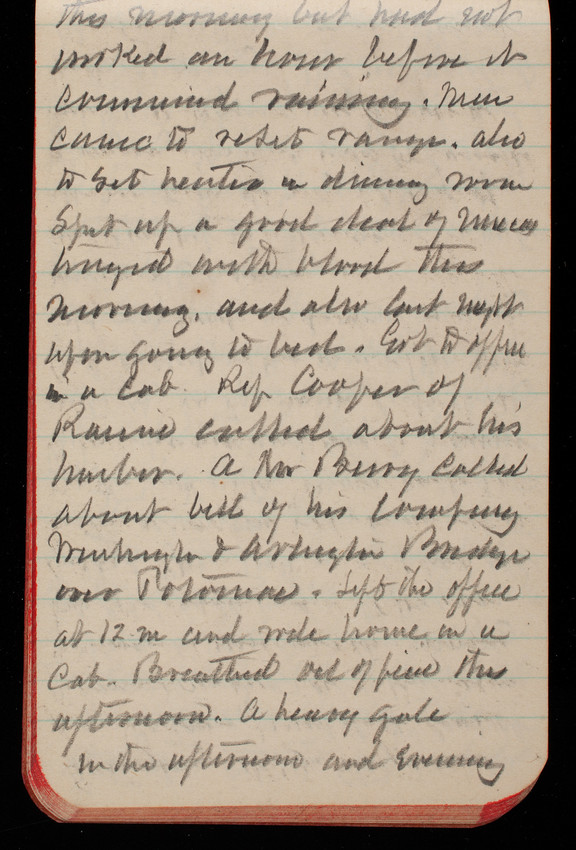 this morning but had not
worked an hour before it
commenced raining. Men
came to reset range. also
to set heater in dining room
Spit up a good deal of mucus
tinged with blood this
morning. and also last night
upon going to bed. Got to office
in a cab. Rep Cooper of
Racine called about his
harbor. A Mr Berry called
about bill of his company
Washington & Arlington Bridge
over Potomac. Left the office
at 12 m and rode home in a
Cab. Breathed out of fire this
afternoon. A heavy gale
in the afternoon and Evening